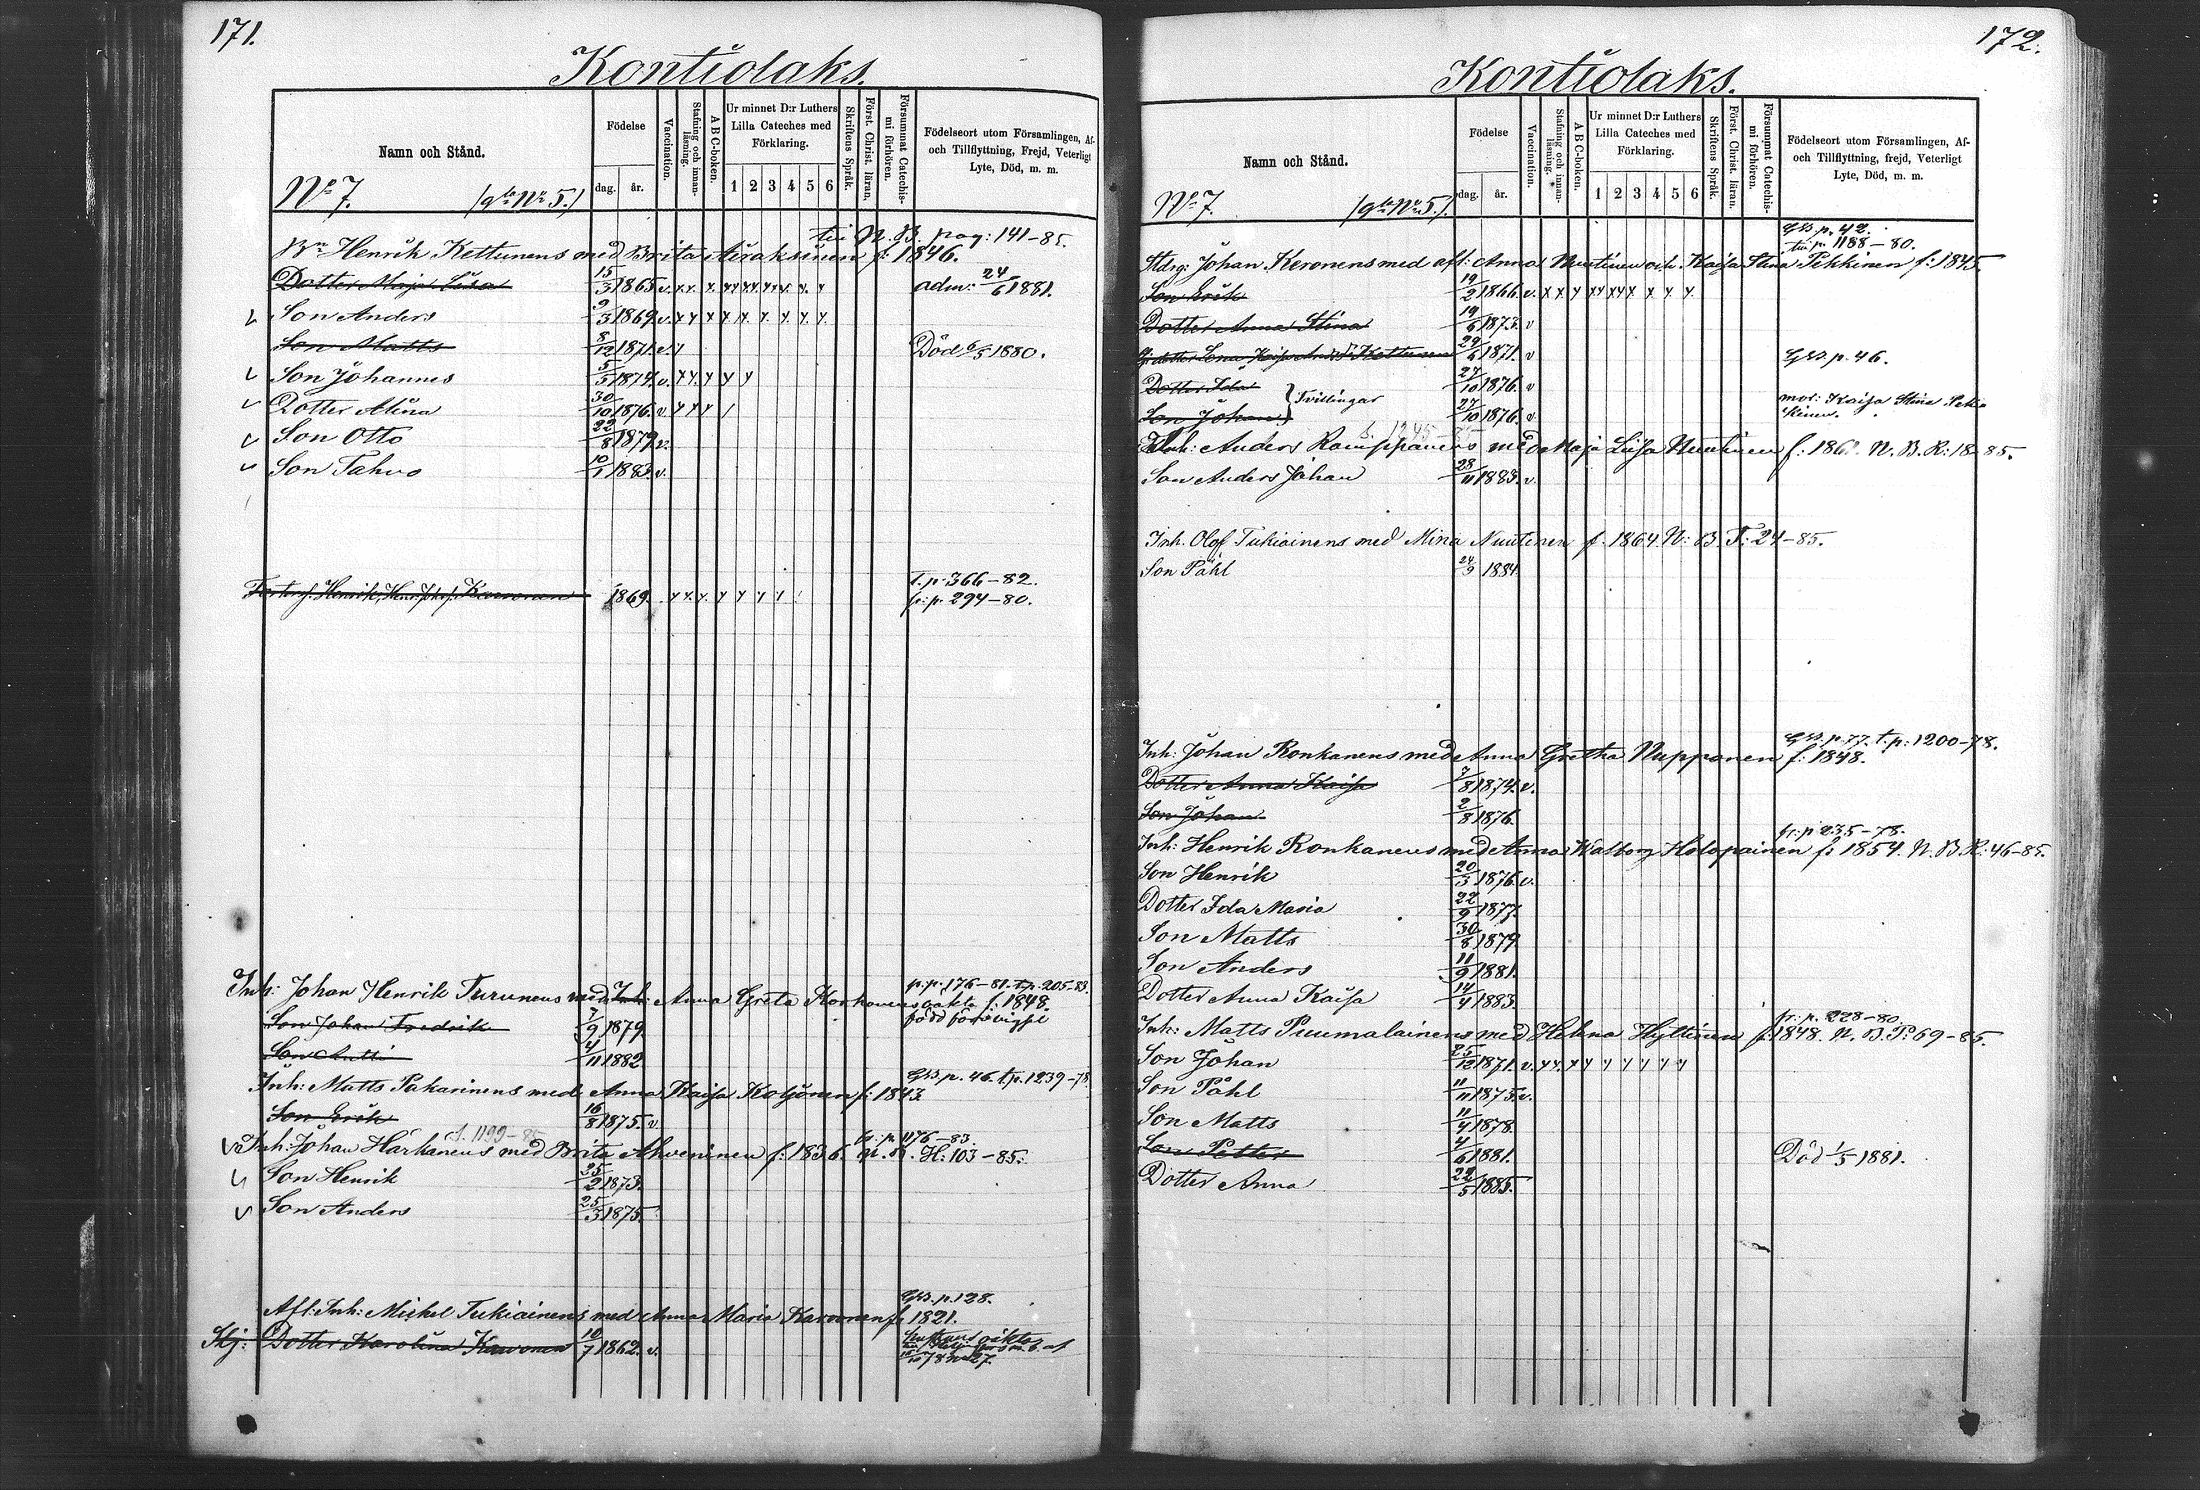 171.
Kontiolaks.
Namn och Stånd.
Födelse
dag. år.
Vaccination.
Stafning och innanläsning.
A B C-boken.
Ur minnet D:r Luthers Lilla Cateches med Förklaring.
1 2 3 4 5 6
Skriftens Språk.
Först. Christ. läran.
Försummat Catechismi förhören.
Födelseort utom Församlingen, Af- och Tillflyttning, Frejd, Veterligt Lyte, Död, m. m.
No 7. /gla No 5./
N. B. pag: 141-85.
Bn Henrik Kettunens med Brita Airaksinen f: 1846.
Dotter Maja Lisa 15/3 1865. v. adm: 24/6 1881.
Son Anders 9/3 1869. v.
Son Matts 8/12 1871. v. Död 6/5 1880.
Son Johannes 5/5 1874. v.
Dotter Alina 30/10 1876. v.
Son Otto 22/8 1879. v.
Son Tahvo 10/1 1883. v.
T. p. 366-82.
Henrik Karvonen 1869. fr: p. 294-80.
p. p. 176-81. t. p. 205-83.
Inh: Johan Henrik Turunens med Inh: Anna Greta Korhonens f. 1848.
Son Johan Fredrik 7/9 1879
Son Antti 4/11 1882
GB. p. 46. t. p. 1239-78.
Inh: Matts Pakarinens med Anna Kaisa Koljonen f: 1843
Son Erik 16/8 1875. v.
t. 1199-85
fr: p. 1176-83.
Inh: Johan Härkänens med Brita Ahveninen f: 1836. N. B. H: 103-85.
Son Henrik 25/2 1873.
Son Anders 25/3 1875.
GB. p. 128.
Afl: Inh: Michel Tukiainens med Anna Maria Karvonen f. 1821.
Dotter Karolina Karvonen 10/7 1862. v.
172.
Kontiolaks.
Namn och Stånd.
Födelse
dag. år.
Vaccination.
Stafning och innanläsning.
A B C-boken.
Ur minnet D:r Luthers Lilla Cateches med Förklaring.
1 2 3 4 5 6
Skriftens Språk.
Först. Christ. läran.
Försummat Catechismi förhören.
Födelseort utom Församlingen, Af- och Tillflyttning, frejd, Veterligt Lyte, Död, m. m.
No 7. /gla No 5./
GB p. 42.
p. 1188-80.
Johan Keronens med afl: Anna Nuutinen och Kaisa Stina Pekkinen f: 1845.
Son Erik 19/2 1866. v.
Dotter Anna Stina 19/6 1873. v
Lena Kaisa Kettunen 29/6 1871. v GB. p. 46.
Dotter Ida 27/10 1876. v
Tvillingar
Son Johan 27/10 1876. v.
mor: Kaisa Stina Pekkinen.
Inh: Anders Romppanens med Maja Lisa Nuutinen N. B. R: 18-85.
Son Anders Johan 28/11 1883. v.
Inh. Olof Tukiainens med Mina Nuutinen f. 1864 N: B. T: 24-85.
Son Påhl 24/9 1884.
GB. p. 77. t. p: 1200-78.
Inh: Johan Ronkanens med Anna Gretha Nupponen f: 1848.
Dotter Anna Kaisa 7/8 1874. v.
Son Johan 2/8 1876.
fr: p 235-78.
Inh: Henrik Ronkanens med Anna Walborg Holopainen f: 1854. N. B. R: 46-85.
Son Henrik 20/3 1876. v.
Dotter Ida Maria 22/9 1877.
Son Matts 30/8 1879
Son Anders 11/9 1881.
Dotter Anna Kaisa 14/4 1883
fr: p. 228-80.
Inh: Matts Puumalainens med Helena Hyttinen f: 1848. N. B. P: 69-85.
Son Johan 25/12 1871. v.
Son Påhl 11/11 1873. v.
Son Matts 11/4 1878.
Son Petter 4/6 1881. Död 1/5 1881.
Dotter Anna 22/5 1885.